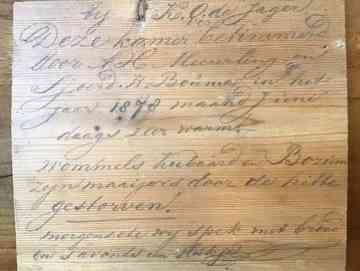 bij K. O. de Jager
Deze kamer betimmerd
door A H Heeringa en
Sjoerd H Bouma in het
jaar 1878 maand Juni
daags zeer warm
Wommels huiband en Bozum
zyn maaijers door de hitte
gestorven!
morgens ete wy spek met brood
en s avonds en